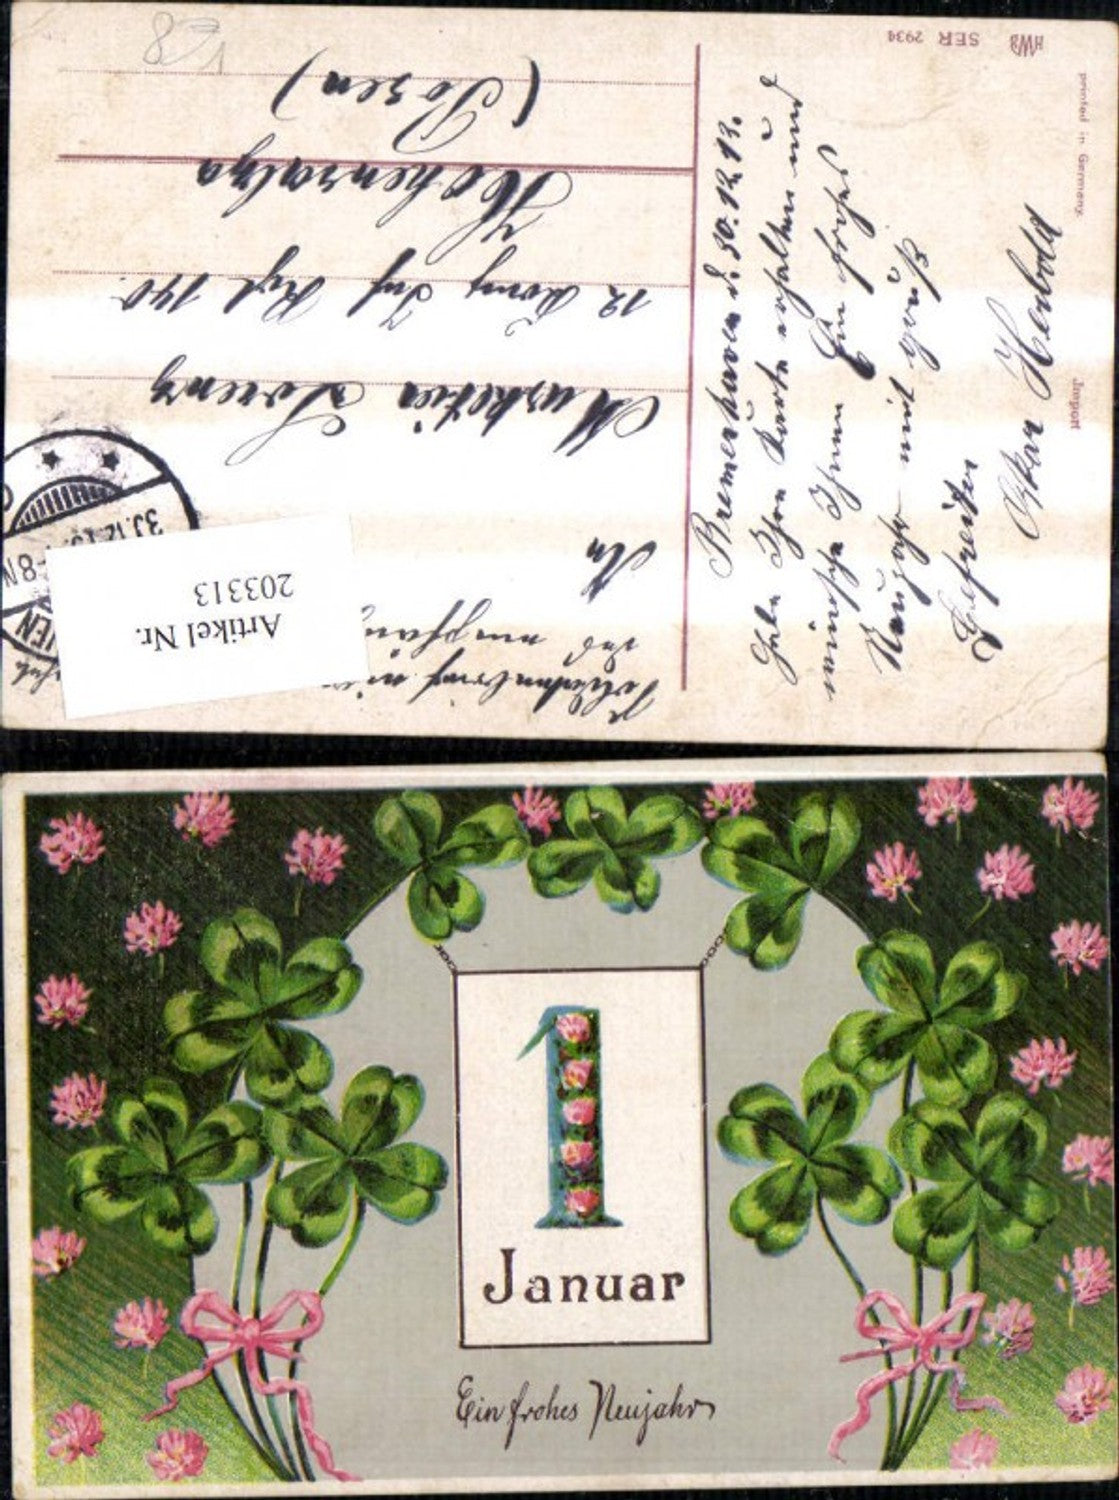 HWB SER 2934
printed in Germany.
Import
Bremerhaven d. 30.12.13.
Habe Ihre Karte erhalten und
wünsche Ihnen Ein frohes
Neujahr mit Gruß
Gefreiter
Oskar Herbold
An
Musketier Lorenz
12 Komp Inf Rgt 140.
Hohensalza
(Posen)
30.12.13.
8N
Artikel Nr.
203313
1
Januar
Ein frohes Neujahr